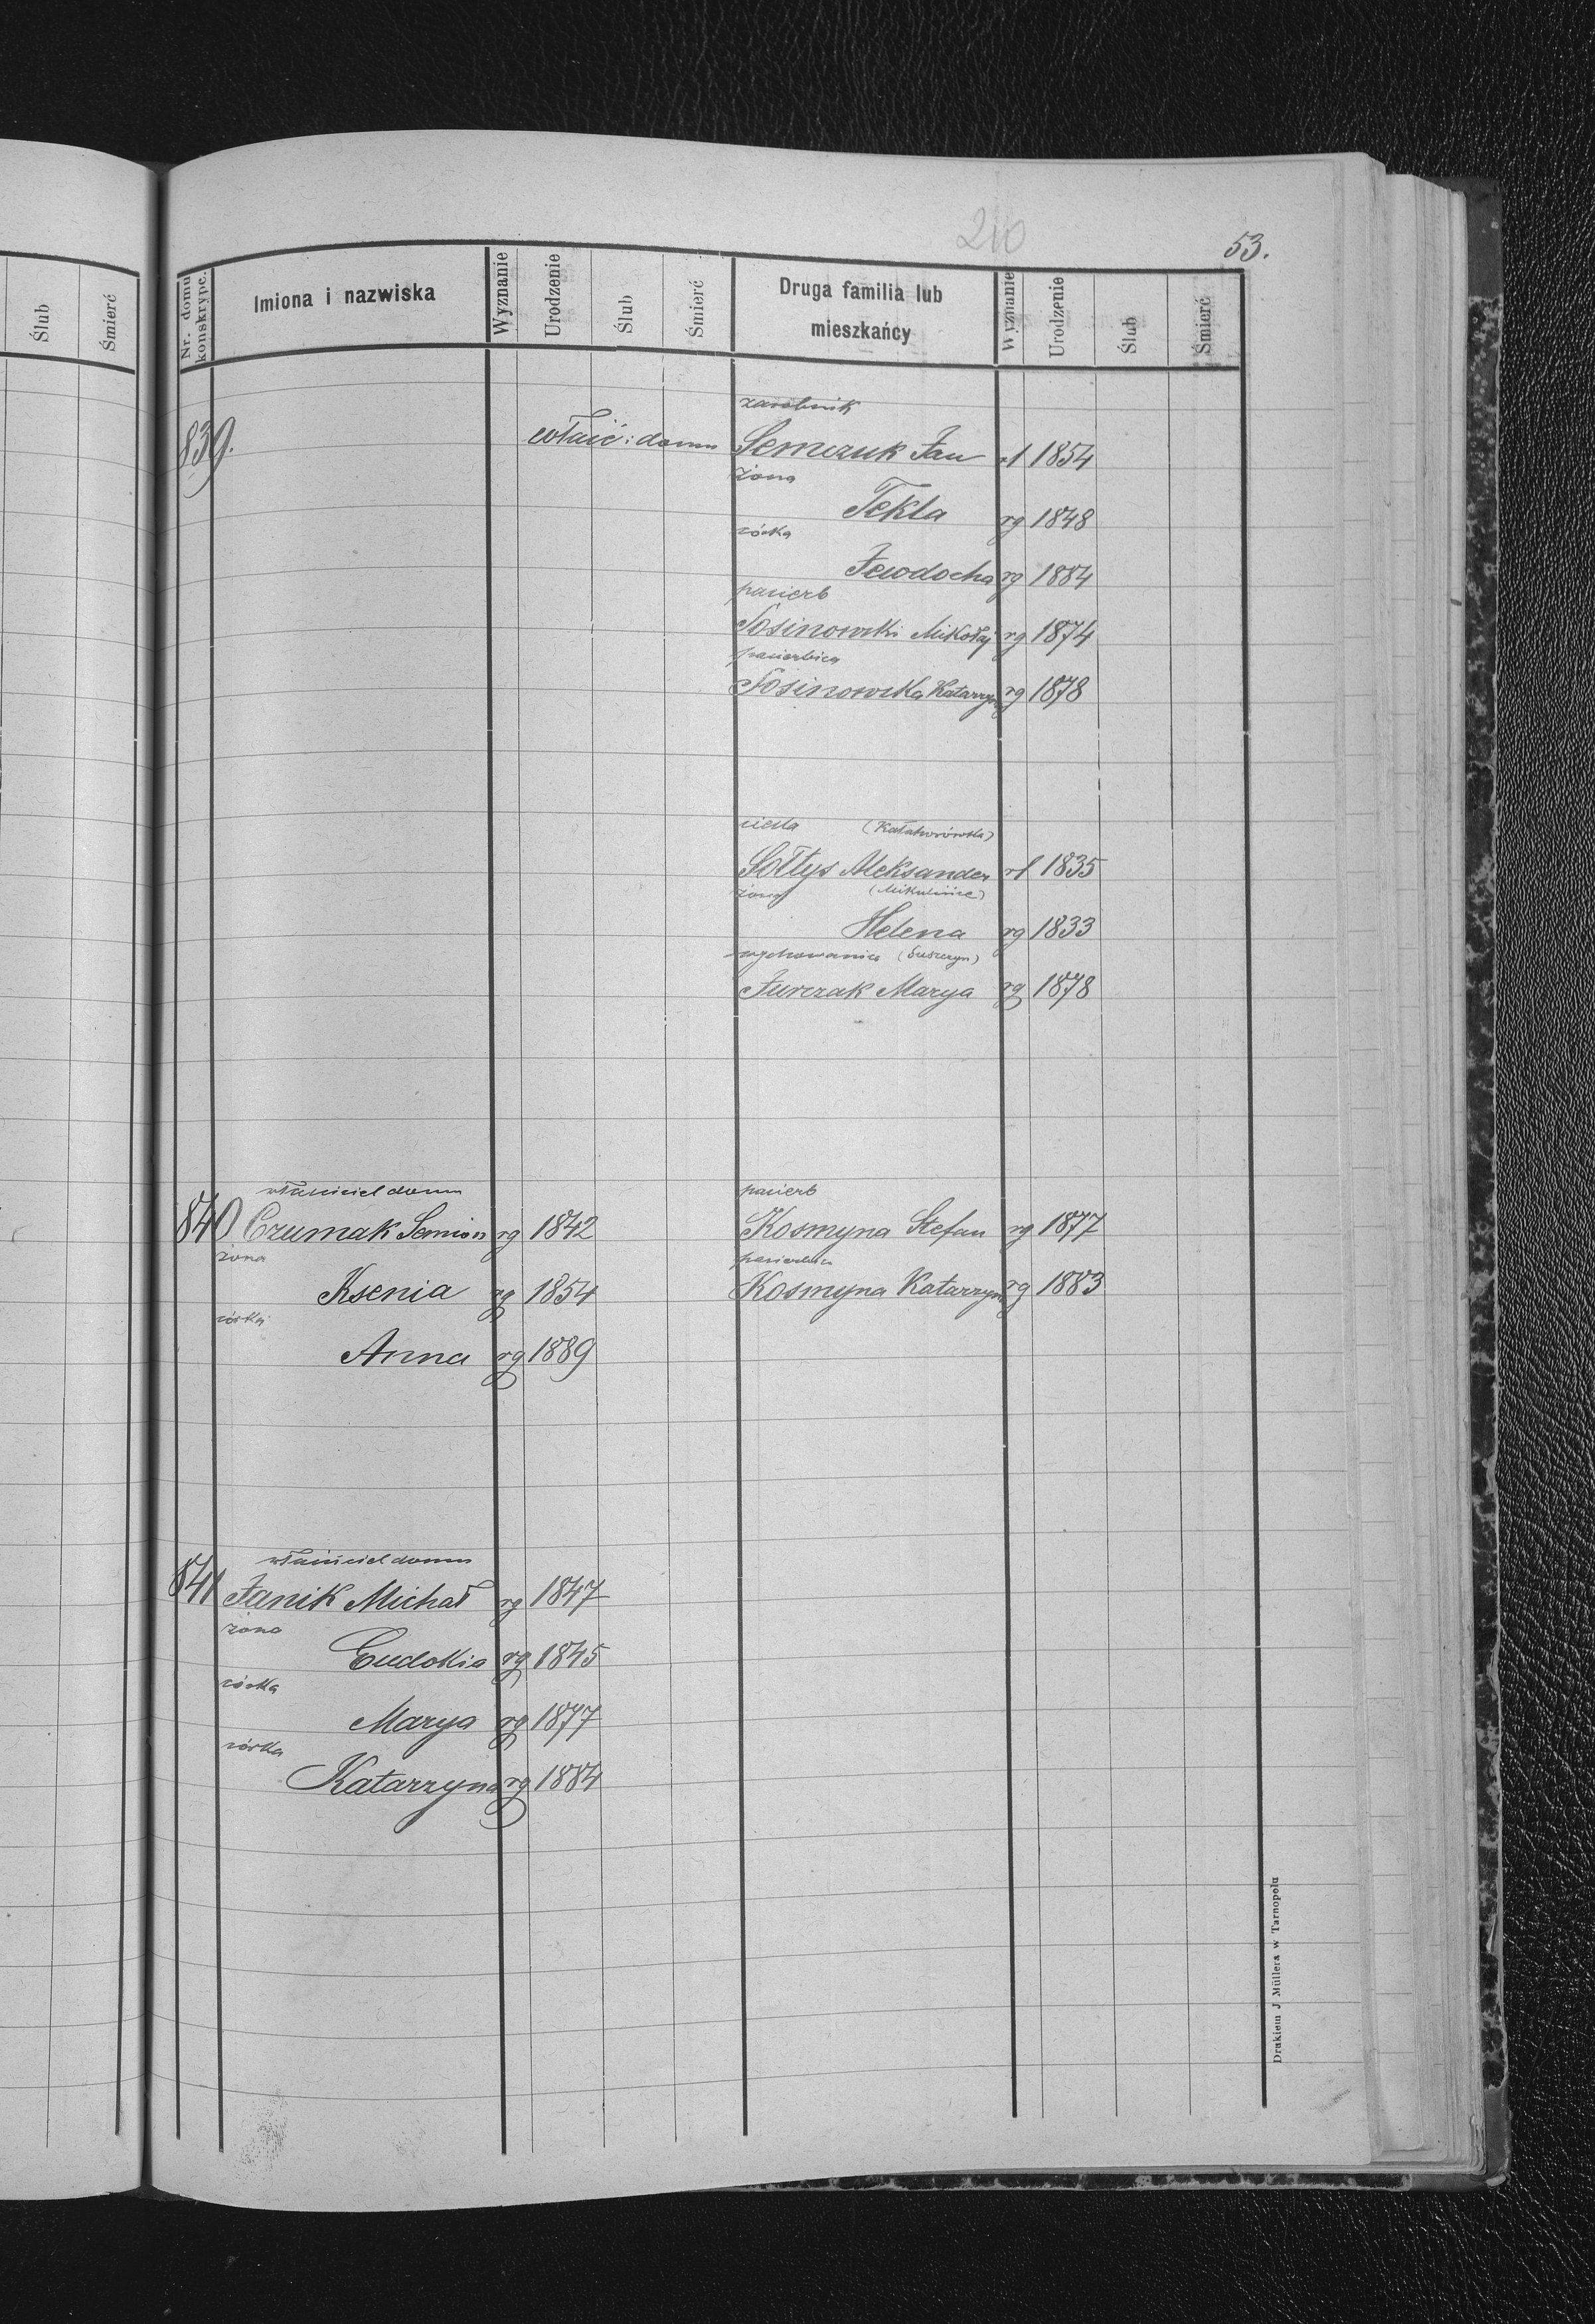 210
53.
Ślub
Śmierć
Nr. domu konskrypc.
Imiona i nazwiska
Wyznanie
Urodzenie
Ślub
Śmierć
Druga familia lub
mieszkańcy
Wyznanie
Urodzenie
Ślub
Śmierć
zarobnik
839. właść: domu Semczuk Jan rł 1854
żona
Tekla rg 1848
córka
Jewdocha rg 1884
pasierb
Sosinowski Mikołaj rg 1874
pasierbica
Sosinowska Katarzyna rg 1878
cieśla
Sołtys Aleksander rł 1835
żona (Mikulińce)
Helena rg 1833
wychowanica (Suszczyn)
Jurczak Marya rg 1878
właściciel domu pasierb
840 Czumak Semion rg 1842 Kosmyna Stefan rg 1877
żona pasierbica
Ksenia rg 1854 Kosmyna Katarzyna rg 1883
córka
Anna rg 1889
właściciel domu
841 Janik Michał rg 1847
żona
Eudokia rg 1845
córka
Marya rg 1877
córka
Katarzyna rg 1884
Drukiem J Müllera w Tarnopolu